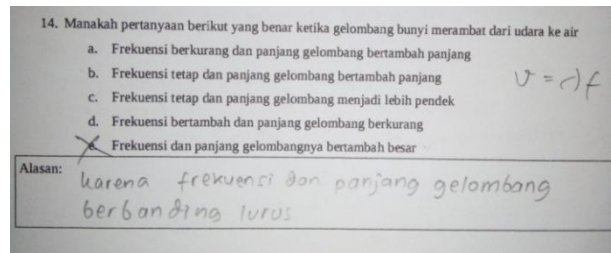 14. Manakah pertanyaan berikut yang benar ketika gelombang bunyi merambat dari udara ke air
a. Frekuensi berkurang dan panjang gelombang bertambah panjang
b. Frekuensi tetap dan panjang gelombang bertambah panjang
v = λf
c. Frekuensi tetap dan panjang gelombang menjadi lebih pendek
d. Frekuensi bertambah dan panjang gelombang berkurang
e. Frekuensi dan panjang gelombangnya bertambah besar
Alasan:
karena frekuensi dan panjang gelombang
berbanding lurus